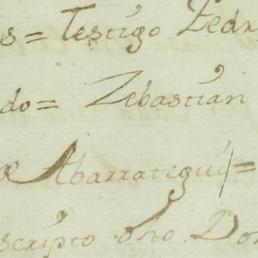 s = Testigo Pedr
do = Zebastian
Abarrategui =
scripto dho Don